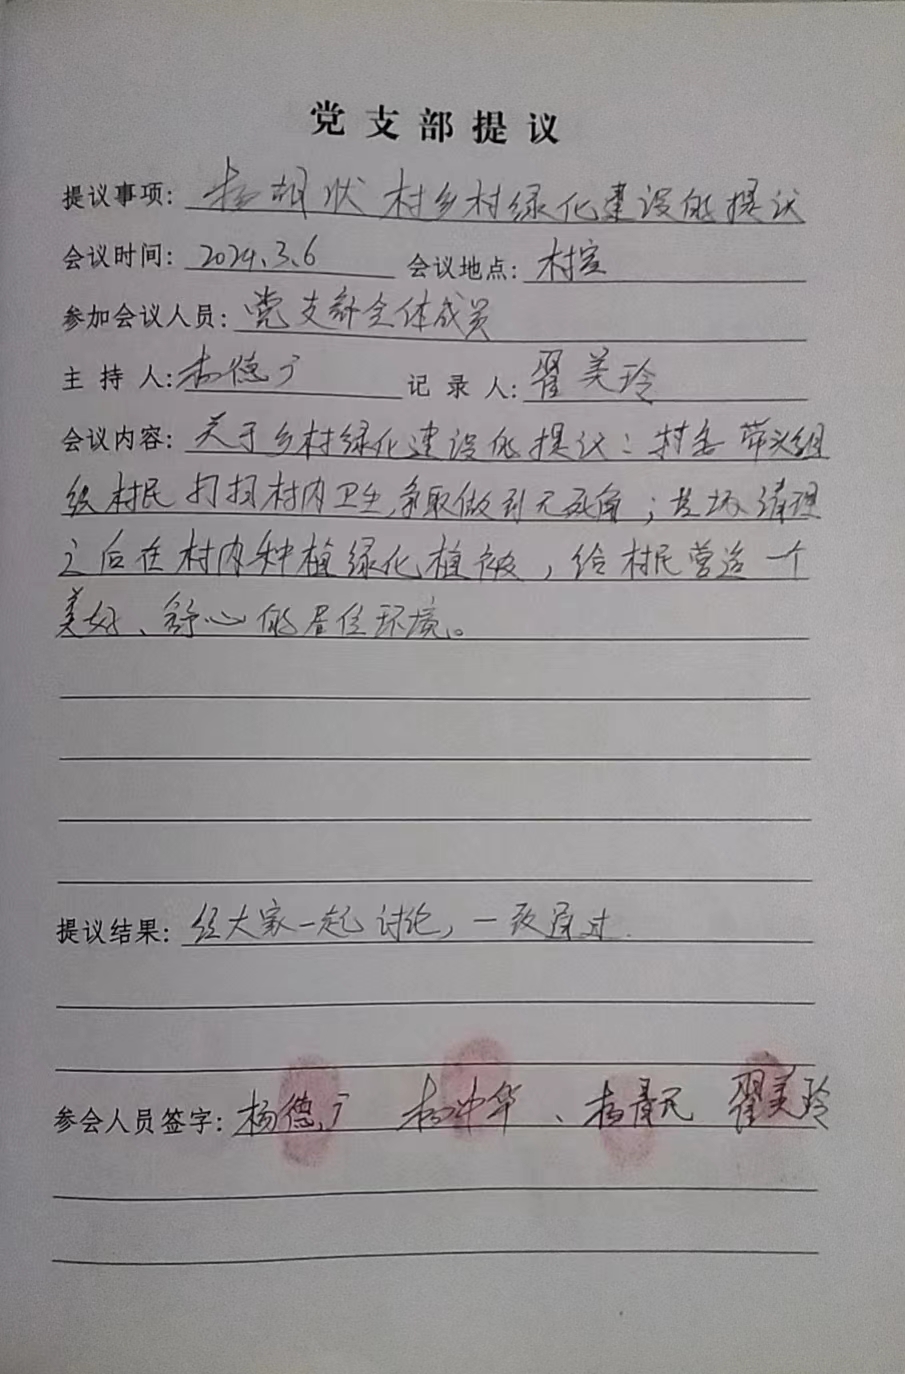 党支部提议
提议事项: 杨胡状村乡村绿化建设的提议
会议时间: 2024.3.6 会议地点: 村室
参加会议人员: 党支部全体成员
主持人: 杨德广 记录人: 翟美玲
会议内容: 关于乡村绿化建设的提议: 村委带头组
织村民打扫村内卫生,争取做到无死角; 垃圾清理
之后在村内种植绿化植被, 给村民营造一个
美好、舒心的居住环境。
提议结果: 经大家一起讨论, 一致通过.
参会人员签字: 杨德广 杨冲华、杨青民 翟美玲